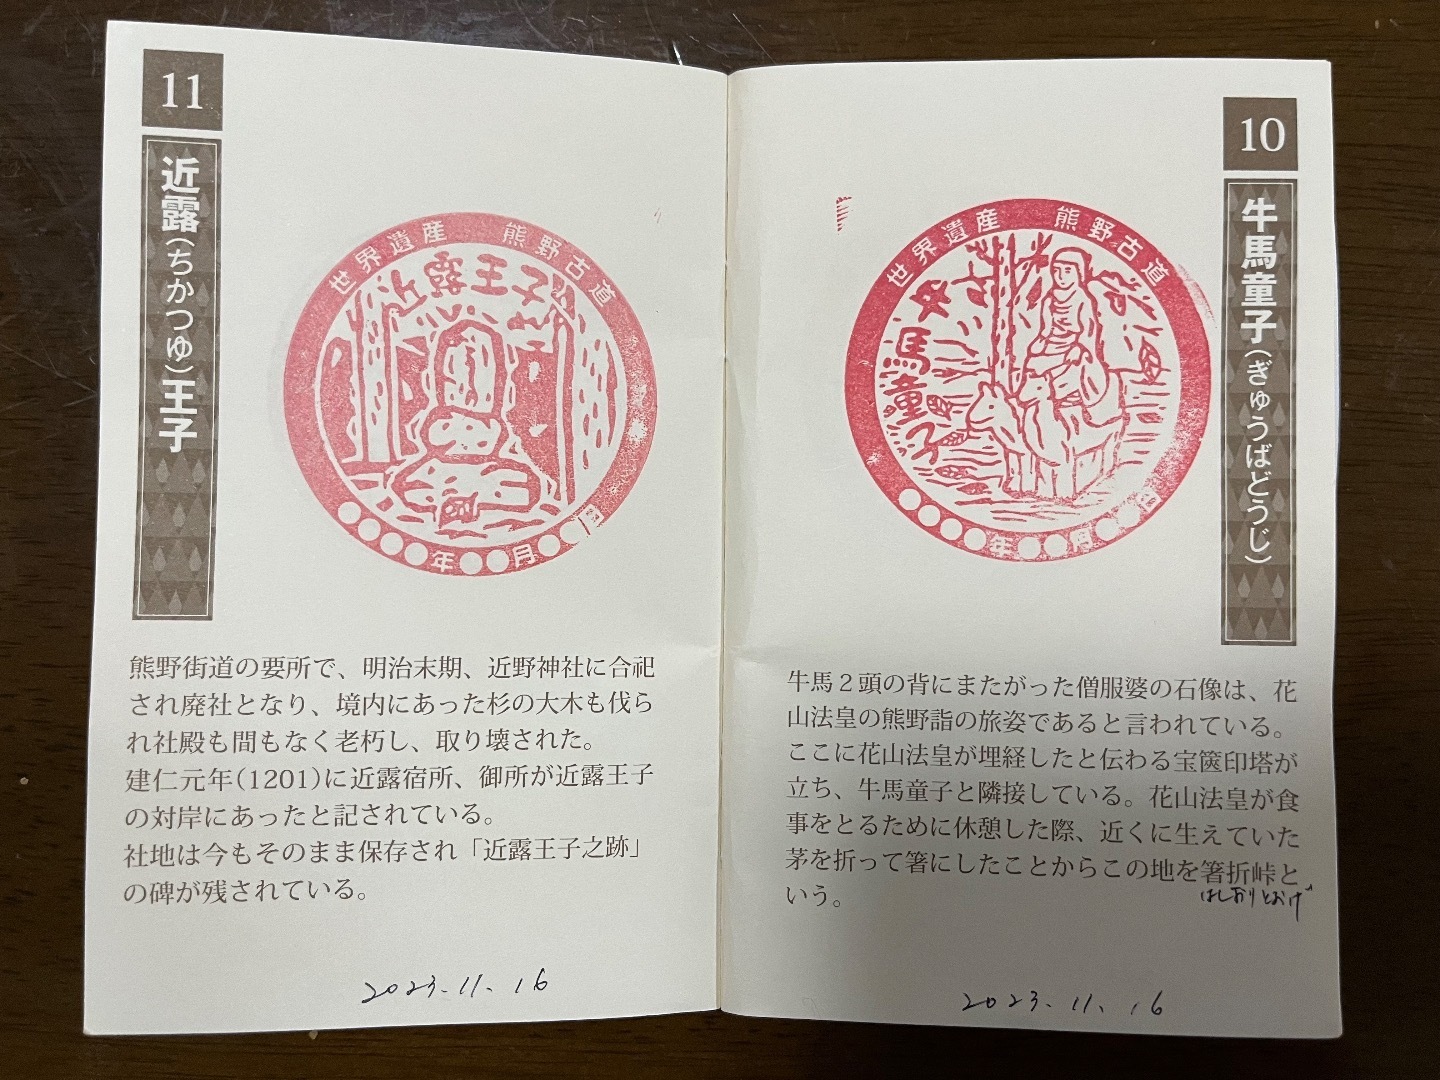 10
牛馬童子(ぎゅうばどうじ)
世界遺産 熊野古道
牛馬童子
年 月 日
牛馬２頭の背にまたがった僧服婆の石像は、花
山法皇の熊野詣の旅姿であると言われている。
ここに花山法皇が埋経したと伝わる宝篋印塔が
立ち、牛馬童子と隣接している。花山法皇が食
事をとるために休憩した際、近くに生えていた
茅を折って箸にしたことからこの地を箸折峠と
いう。
はしおりとおげ
2023.11.16
11
近露(ちかつゆ)王子
世界遺産 熊野古道
近露王子
年 月 日
熊野街道の要所で、明治末期、近野神社に合祀
され廃社となり、境内にあった杉の大木も伐ら
れ社殿も間もなく老朽し、取り壊された。
建仁元年(1201)に近露宿所、御所が近露王子
の対岸にあったと記されている。
社地は今もそのまま保存され「近露王子之跡」
の碑が残されている。
2023.11.16